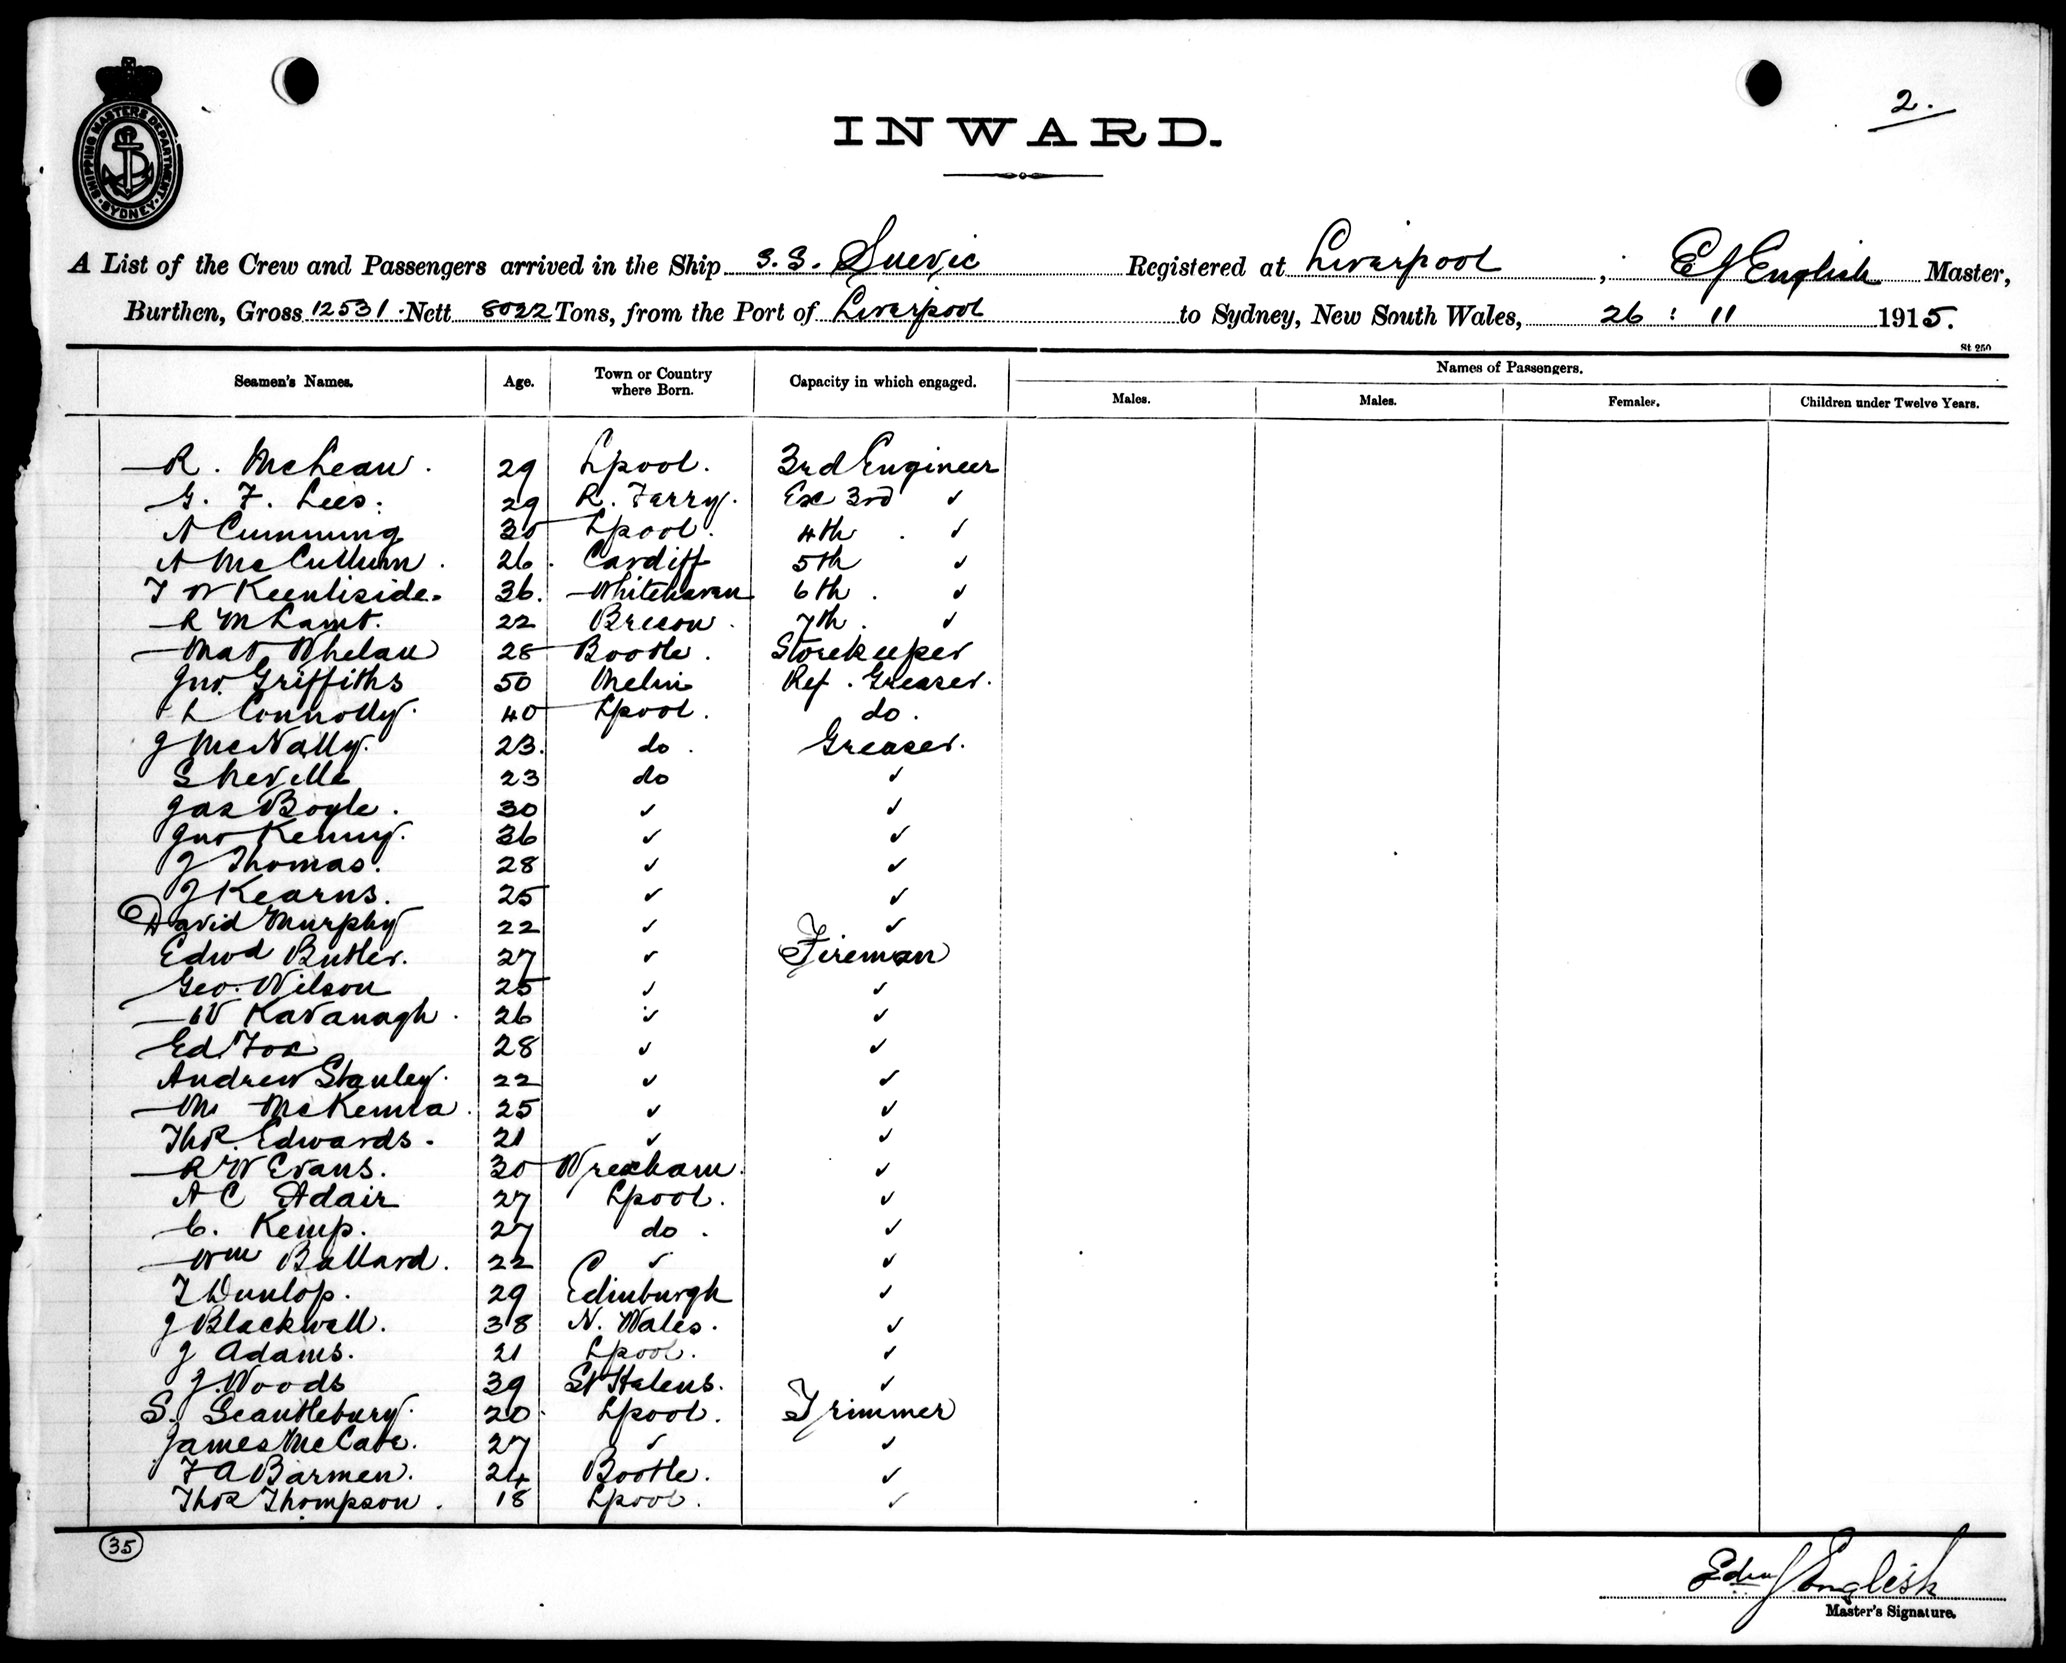 2.
SHIPPING MASTERS DEPARTMENT
SYDNEY
INWARD.
A List of the Crew and Passengers arrived in the Ship S.S. Suevic Registered at Liverpool ; E J English Master,
Burthen, Gross 12531 Nett 8022 Tons, from the Port of Liverpool to Sydney, New South Wales, 26 : 11 1915.
St 250
Seamen's Names. Age. Town or Country where Born. Capacity in which engaged. Names of Passengers.
Males. Males. Females. Children under Twelve Years.
R. McLean. 29 Lpool. 3rd Engineer
G. F. Lees. 29 R. Ferry. Ex 3rd ✓
A Cumming 30 Lpool. 4th ✓
A McCullum. 26. Cardiff 5th ✓
J W Keenliside. 36. Whitehaven 6th. ✓
R M Lamt. 22 Brecon. 7th. ✓
Mat Whelan 28 Bootle. Storekeeper
Jno. Griffiths 50 Melin Ref. Greaser.
L Connolly. 40 Lpool. do.
J McNally. 23. do. Greaser.
S Neville 23 do ✓
Jas Boyle. 30 ✓ ✓
Jno Kenny. 36 ✓ ✓
J Thomas. 28 ✓ ✓
J Kearns. 25 ✓ ✓
David Murphy 22 ✓ ✓
Edwd Butler. 27 ✓ Fireman
Geo. Wilson 25 ✓ ✓
W Kavanagh. 26 ✓ ✓
Ed Fox 28 ✓ ✓
Andrew Stanley. 22 ✓ ✓
M McKenna. 25 ✓ ✓
Thos. Edwards. 21 ✓ ✓
R W Evans. 30 Wrexham. ✓
A C Adair 27 Lpool. ✓
C. Kemp. 27 do. ✓
Wm Ballard. 22 ✓ ✓
T Dunlop. 29 Edinburgh ✓
J Blackwell. 38 N. Wales. ✓
J Adams. 21 Lpool. ✓
J. Woods 39 St Helens. ✓
S. Scantlebury. 20. Lpool. Trimmer
James McCabe. 27 ✓ ✓
F A Barmen. 24 Bootle. ✓
Thos Thompson. 18 Lpool. ✓
35
Edw J English
Master's Signature.